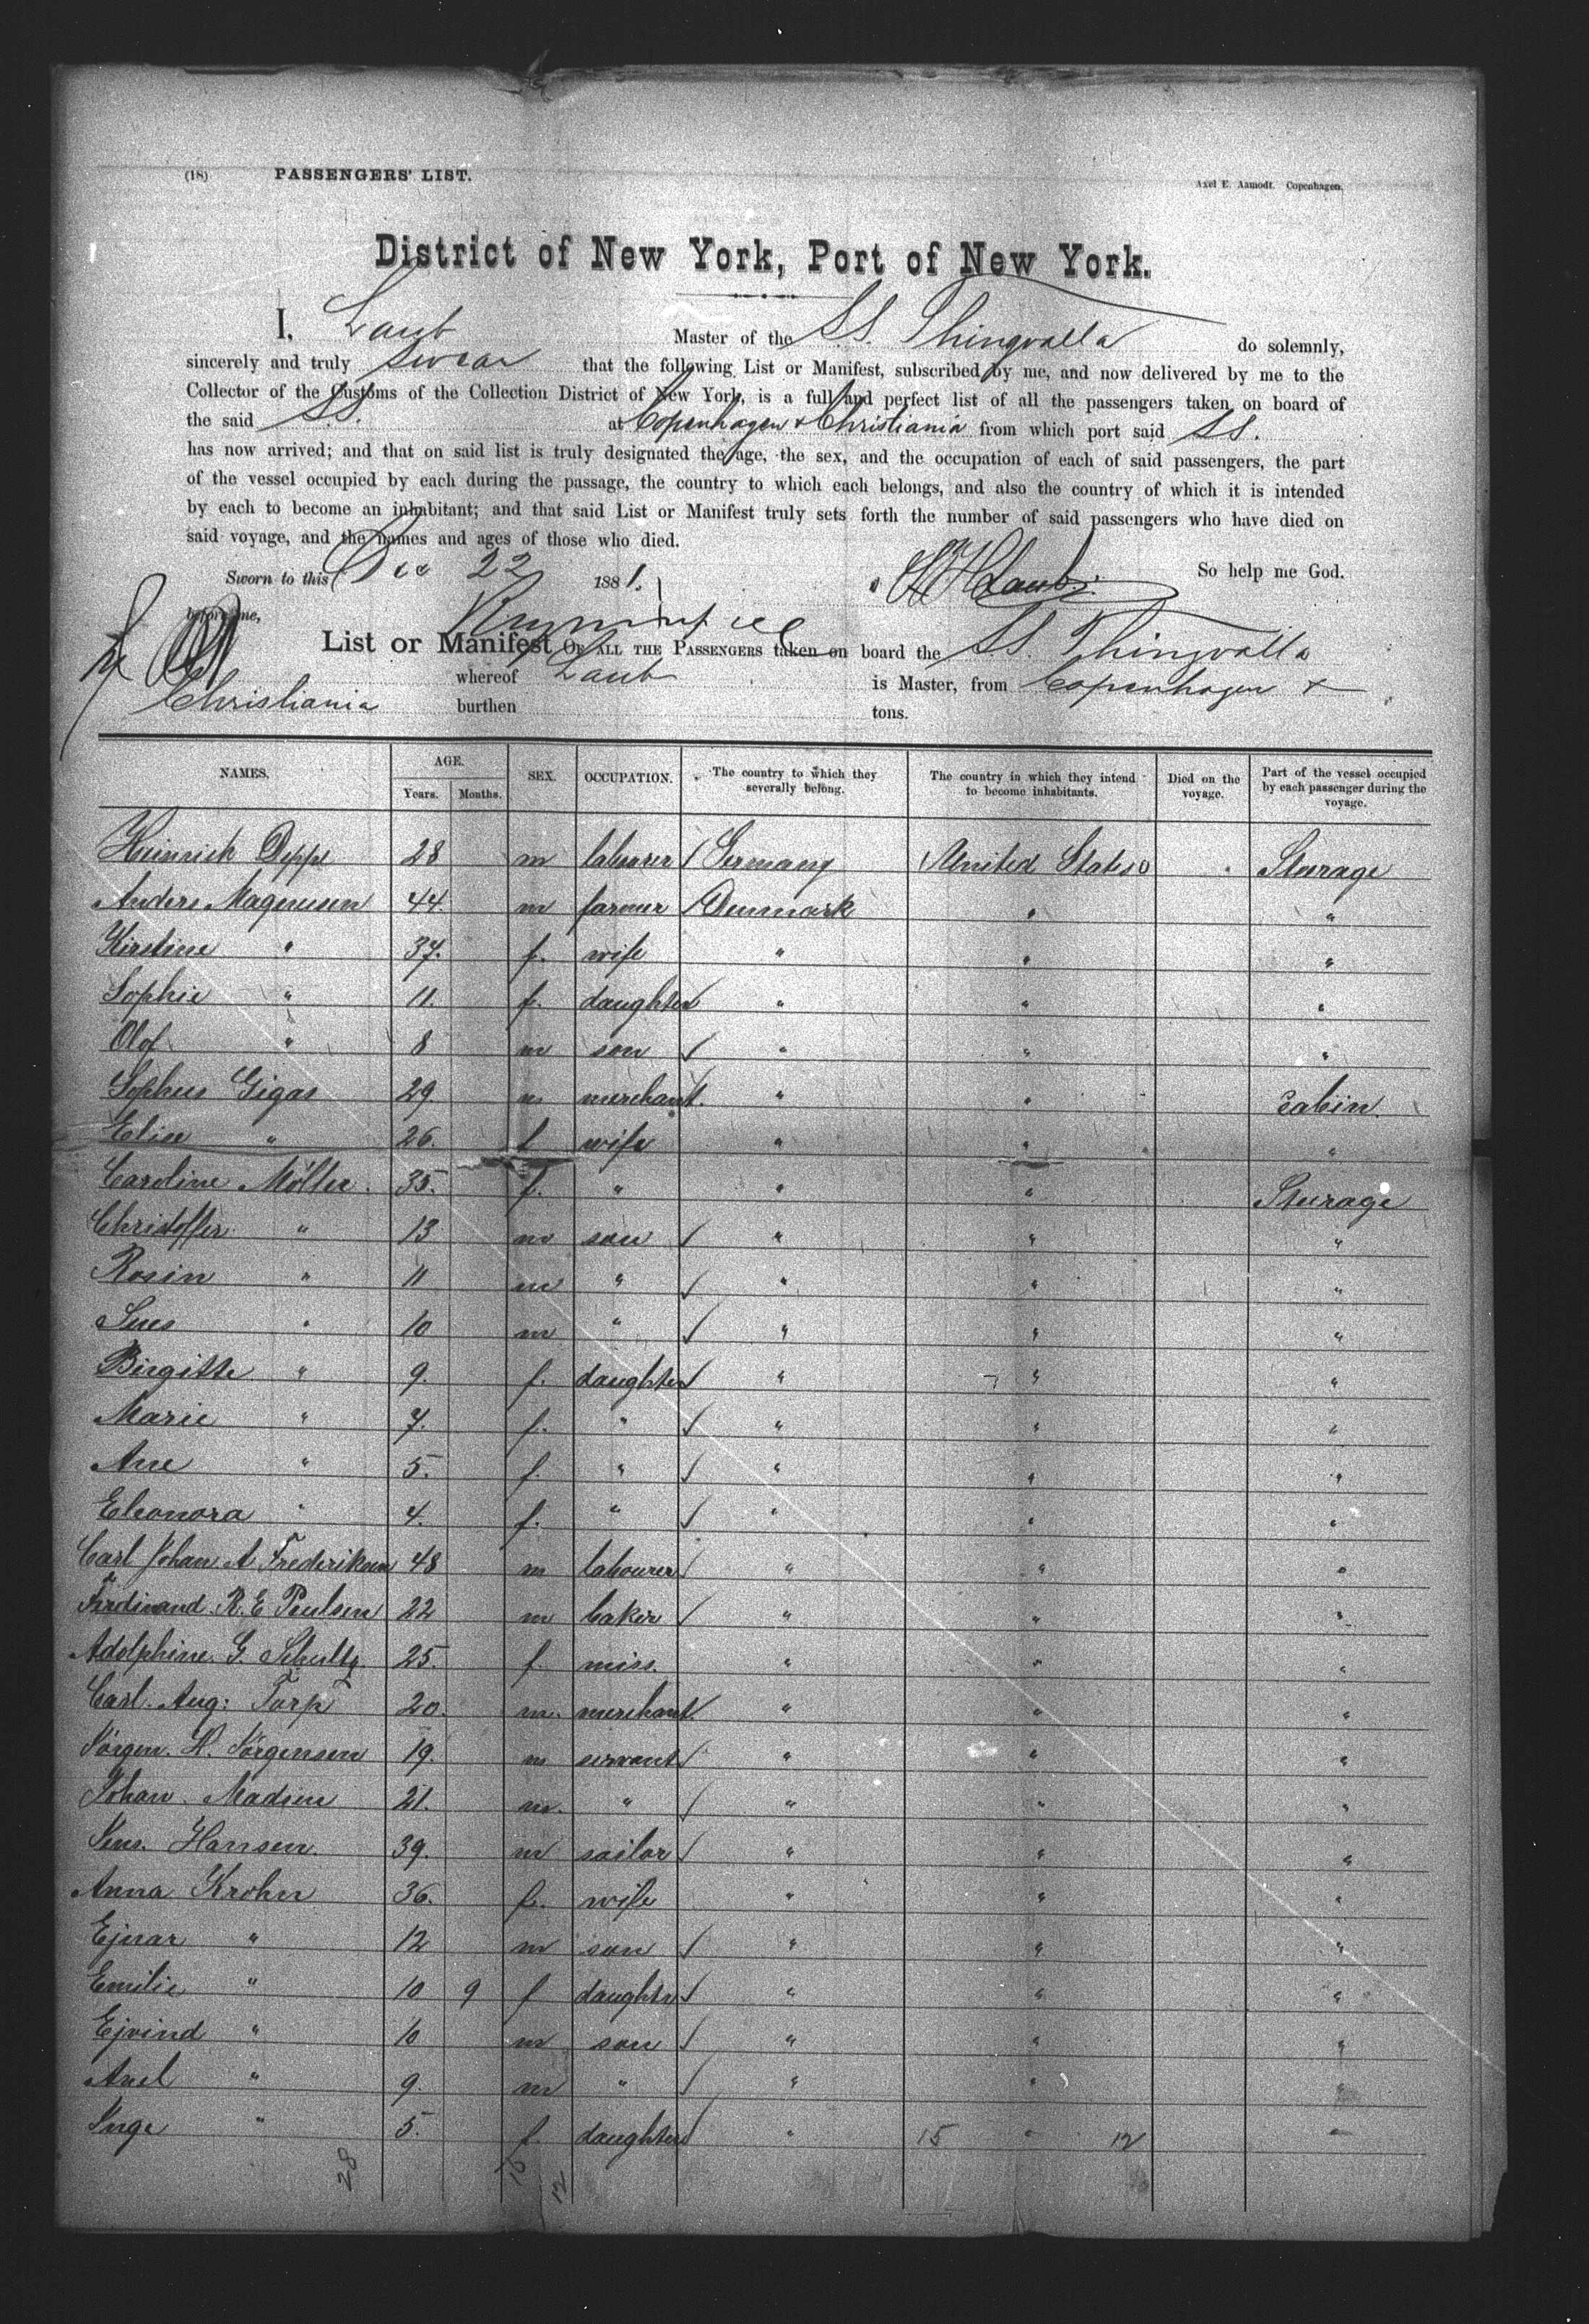 (18) PASSENGERS' LIST. Axel E. Aamodt. Copenhagen.
District of New York, Port of New York.
I, Laub Master of the SS. Thingvalla do solemnly,
sincerely and truly swear that the following List or Manifest, subscribed by me, and now delivered by me to the
Collector of the Customs of the Collection District of New York, is a full and perfect list of all the passengers taken on board of
the said SS. at Copenhagen & Christiania from which port said SS.
has now arrived; and that on said list is truly designated the age, the sex, and the occupation of each of said passengers, the part
of the vessel occupied by each during the passage, the country to which each belongs, and also the country of which it is intended
by each to become an inhabitant; and that said List or Manifest truly sets forth the number of said passengers who have died on
said voyage, and the names and ages of those who died.
Sworn to this Dec 22 1881. Laub So help me God.
before me,
List or Manifest OF ALL THE PASSENGERS taken on board the SS. Thingvalla
whereof Laub is Master, from Copenhagen &
Christiania burthen tons.
NAMES. AGE. Years. Months. SEX. OCCUPATION. The country to which they severally belong. The country in which they intend to become inhabitants. Died on the voyage. Part of the vessel occupied by each passenger during the voyage.
Heinrich Deppe 28 m labourer Germany United States Steerage
Anders Magnusen 44. m farmer Denmark " "
Kirstine " 37. f. wife " " "
Sophie " 11. f. daughter " " "
Olof " 8 m son " " "
Sophus Gigas 29. m merchant. " " cabin.
Elise " 26. f wife " " "
Caroline Möller. 35. f. " " " Steerage
Christoffer " 13 m son " " "
Rosin " 11 m " " " "
" 10 m " " " "
Birgitte " 9. f. daughter " " "
Marie " 7. f. " " " "
Ane " 5. f. " " " "
Eleonora " 4. f. " " " "
Carl Johan A Frederiksen 48 m labourer " " "
Ferdinand. R. E Poulsen 22 m baker " " "
Adolphine. G. Schultz. 25. f. miss. " " "
Carl. Aug: Torp 20. m. merchant. " " "
Jörgen. H. Jörgensen 19. m servant " " "
Johan. Madsen 21. m. " " " "
Jens. Hansen. 39. m sailor " " "
Anna Krohn 36. f. wife " " "
Ejnar " 12 m son " " "
Emilie " 10 9 f daughter " " "
Ejvind " 10 m son " " "
Axel " 9. m " " " "
Inge " 5. f. daughter " 15 " 12 "
28 12